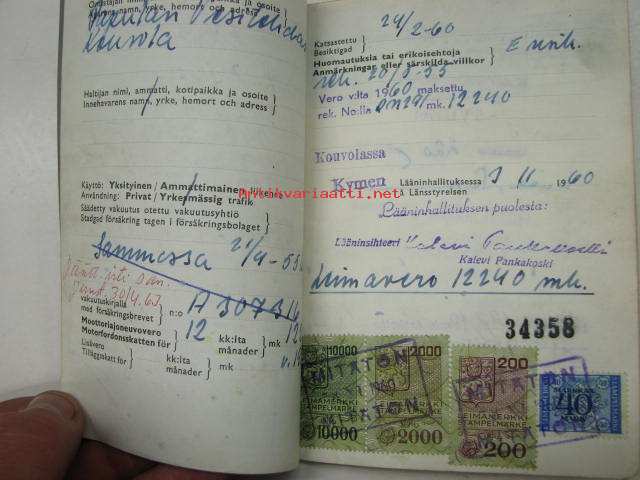 nimi, yrke, hemort och adress
Kouvola
Haltijan nimi, ammatti, kotipaikka ja osoite
Innehavarens namn, yrke, hemort och adress
Käyttö: Yksityinen / Ammattimainen liikenne
Användning: Privat / Yrkesmässig trafik
Säädetty vakuutus otettu vakuutusyhtiö
Stadgad försäkring tagen i försäkringsbolaget
Sammossa 21/4-55
30/4.63
vakuutuskirjalla
med försäkringsbrevet
n:o A 307316
Moottoriajoneuvovero
Motorfordonsskatten för
12 kk:lta
månader
12
Lisävero
Tilläggskatt för
kk:lta
månader
mk
Katsastettu
Besiktigad
24/2-60
Huomautuksia tai erikoisehtoja
Anmärkningar eller särskilda villkor
rek. 20/5-55
Vero v:lta 1960 maksettu
rek. No:lla mk. 12240
Kouvolassa
Kymen
Lääninhallituksessa
å Länsstyreisen
3 11 1960
Lääninhallituksen puolesta:
Lääninsihteeri Kalevi Pankakoski
Kalevi Pankakoski
Leimavero 12240 mk.
34358
10000
LEIMAMERKKI
STÄMPELMÄRKE
10000
2000
LEIMAMERKKI
STÄMPELMÄRKE
2000
200
LEIMAMERKKI
STÄMPELMÄRKE
200
MARKKAA
40
MARK
MITÄTÖN
MITÄTÖN
MITÄTÖN
Antikvariaatti.net